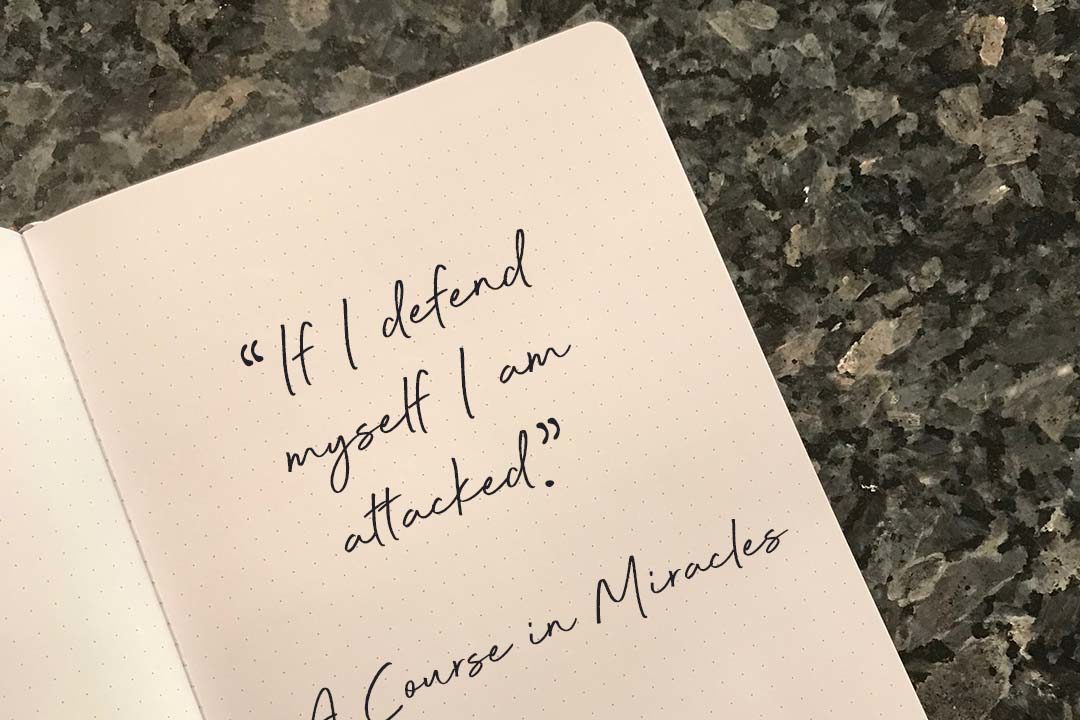 “If I defend
myself I am
attacked”.
A Course in Miracles